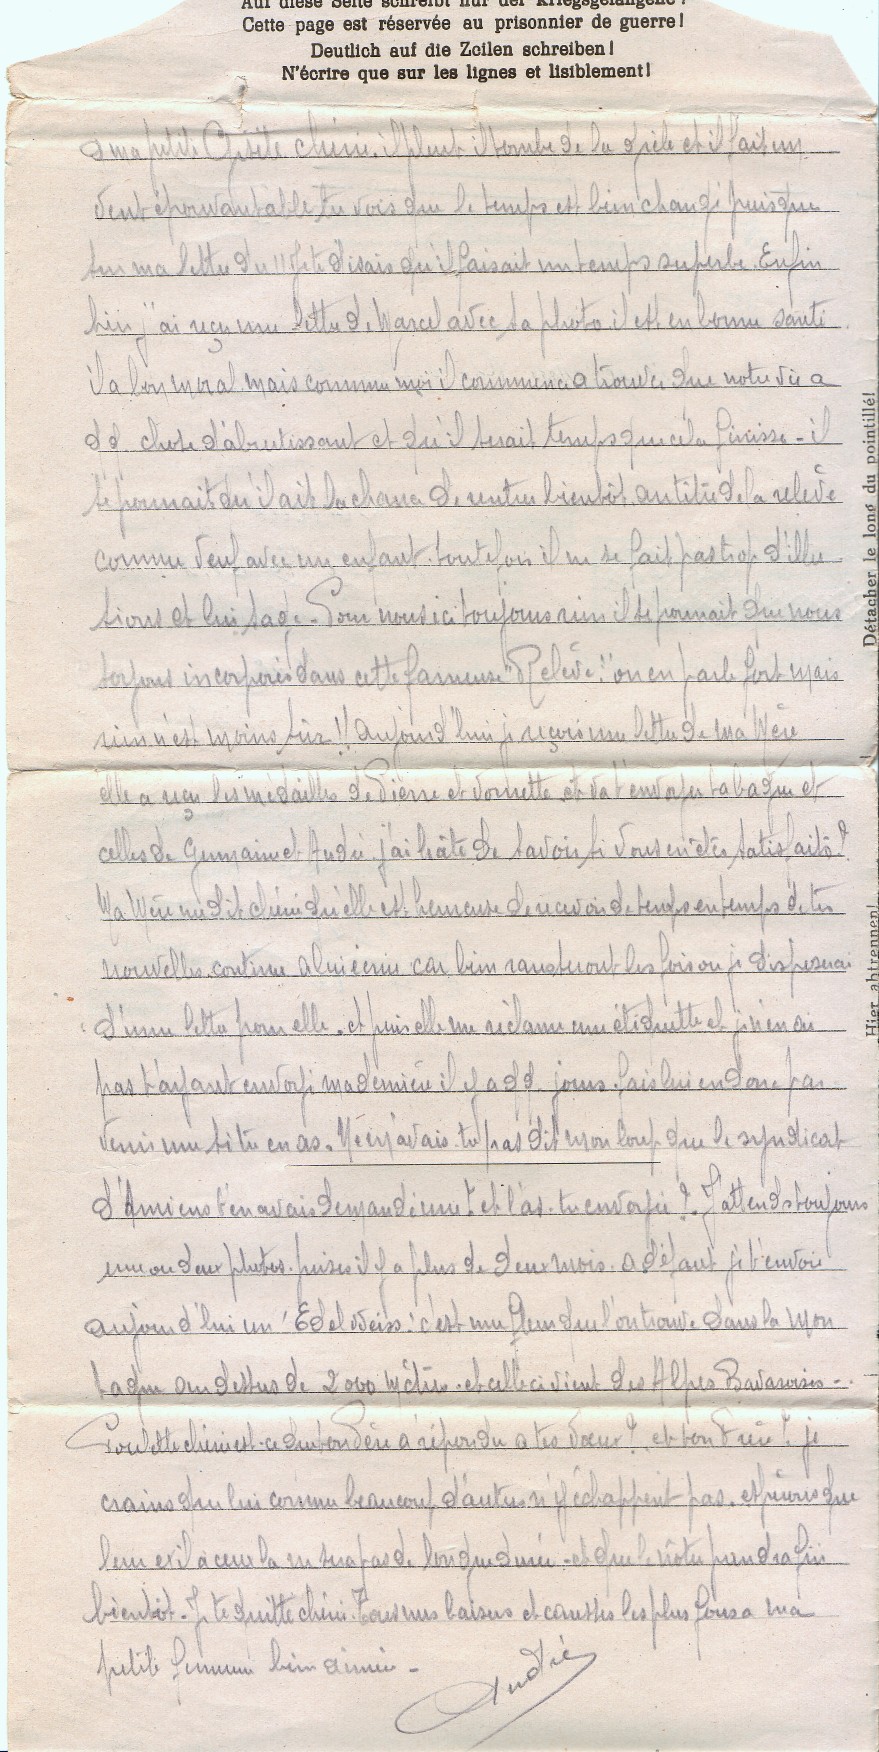 Auf diese Seite schreibt nur der Kriegsgefangene!
Cette page est réservée au prisonnier de guerre!
Deutlich auf die Zeilen schreiben!
N'écrire que sur les lignes et lisiblement!
a ma petite chérie. il pleut il tombe de la grêle et il fait un
vent épouvantable tu vois que le temps est bien changé puisque
sur ma lettre du 11 je te disais qu'il faisait un temps superbe. Enfin
bien j'ai reçu une lettre de Marcel avec sa photo il est en bonne santé
il a bon moral mais comme moi il commence a trouver que notre vie a
qq. chose d'abrutissant et qu'il serait temps que cela finisse - il
se pourrait qu'il ait la chance de rentrer bientôt au titre de la relève
comme veuf avec un enfant. toutefois il ne se fait pas trop d'illu
sions et lui sage - Pour nous ici toujours rien il se pourrait que nous
soyons incorporés dans cette fameuse "Relève!" on en parle fort mais
rien n'est moins sûr!! aujourd'hui je reçois une lettre de ma Mère
elle a reçu les médailles de Pierre et et va t'envoyer ta bague et
celles de Germaine et André j'ai hâte de savoir si vous en êtes satisfaits?
Ma Mère me dit chérie qu'elle est heureuse de recevoir de temps en temps de tes
nouvelles. continue a lui écrire car bien rares seront les fois ou je disposerai
d'une lettre pour elle. et puis elle me réclame une étiquette et je n'en ai
pas t'ayant envoyé ma dernière il y a qq. jours. fais lui en donc par
venir une si tu en as. Ne m'avais-tu pas dit mon loup que le syndicat
d'Amiens t'en avais demandé une? et l'as-tu envoyée? J'attends toujours
une ou deux photos. prises il y a plus de deux mois. a défaut je t'envoie
aujourd'hui un "Edelweiss." c'est une fleur que l'on trouve dans la mon
tagne au dessus de 2000 Mètres. et celle ci vient des Alpes Bavaroises -
Poulette chérie est-ce que ton Père a répondu a tes vœux? et ton Frère? je
crains que lui comme beaucoup d'autres n'y échappent pas. espérons que
leur exil à ceux la ne sera pas de longue durée - et que le nôtre prendra fin
bientôt. Je te quitte chérie. Tous mes baisers et caresses les plus fous a ma
petite femme bien aimée -
André
Détacher le long du pointillé!
Hier abtrennen!